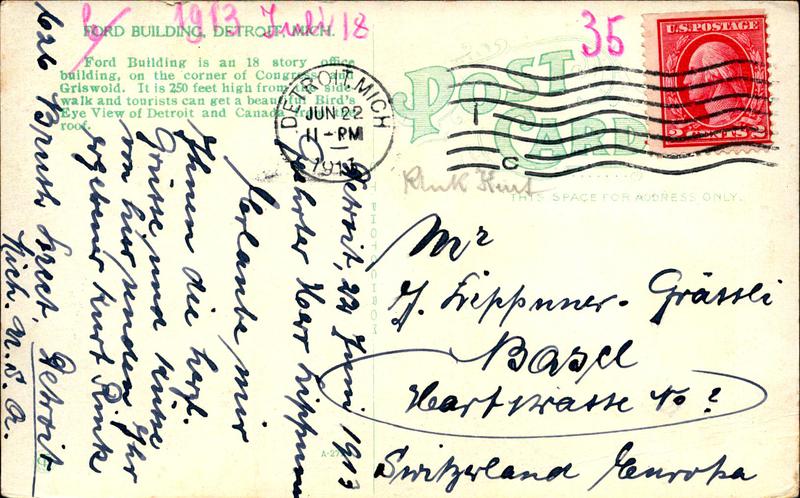 1913 Juli 18
35
FORD BUILDING, DETROIT, MICH.
Ford Building is an 18 story office
building, on the corner of Congress and
Griswold. It is 250 feet high from the side
walk and tourists can get a beautiful Bird's
Eye View of Detroit and Canada from the
roof.
POST
CARD
U.S. POSTAGE
2 CENTS 2
DETROIT, MICH
JUN 22
11-PM
1913
1
C
Rink Kurt
THIS SPACE FOR ADDRESS ONLY.
Detroit, 22 Juni 1913
Geehrter Herr Zippuner
Erlaube mir
Ihnen die herzl.
Grüsse und Küsse
von hier senden Ihr
ergebener Kurt Rink
626 Brush Street, Detroit
Mich. U.S.A.
Mr
J. Zippuner-Grässli
Basel
Hartstrasse No ?
Switzerland Europa